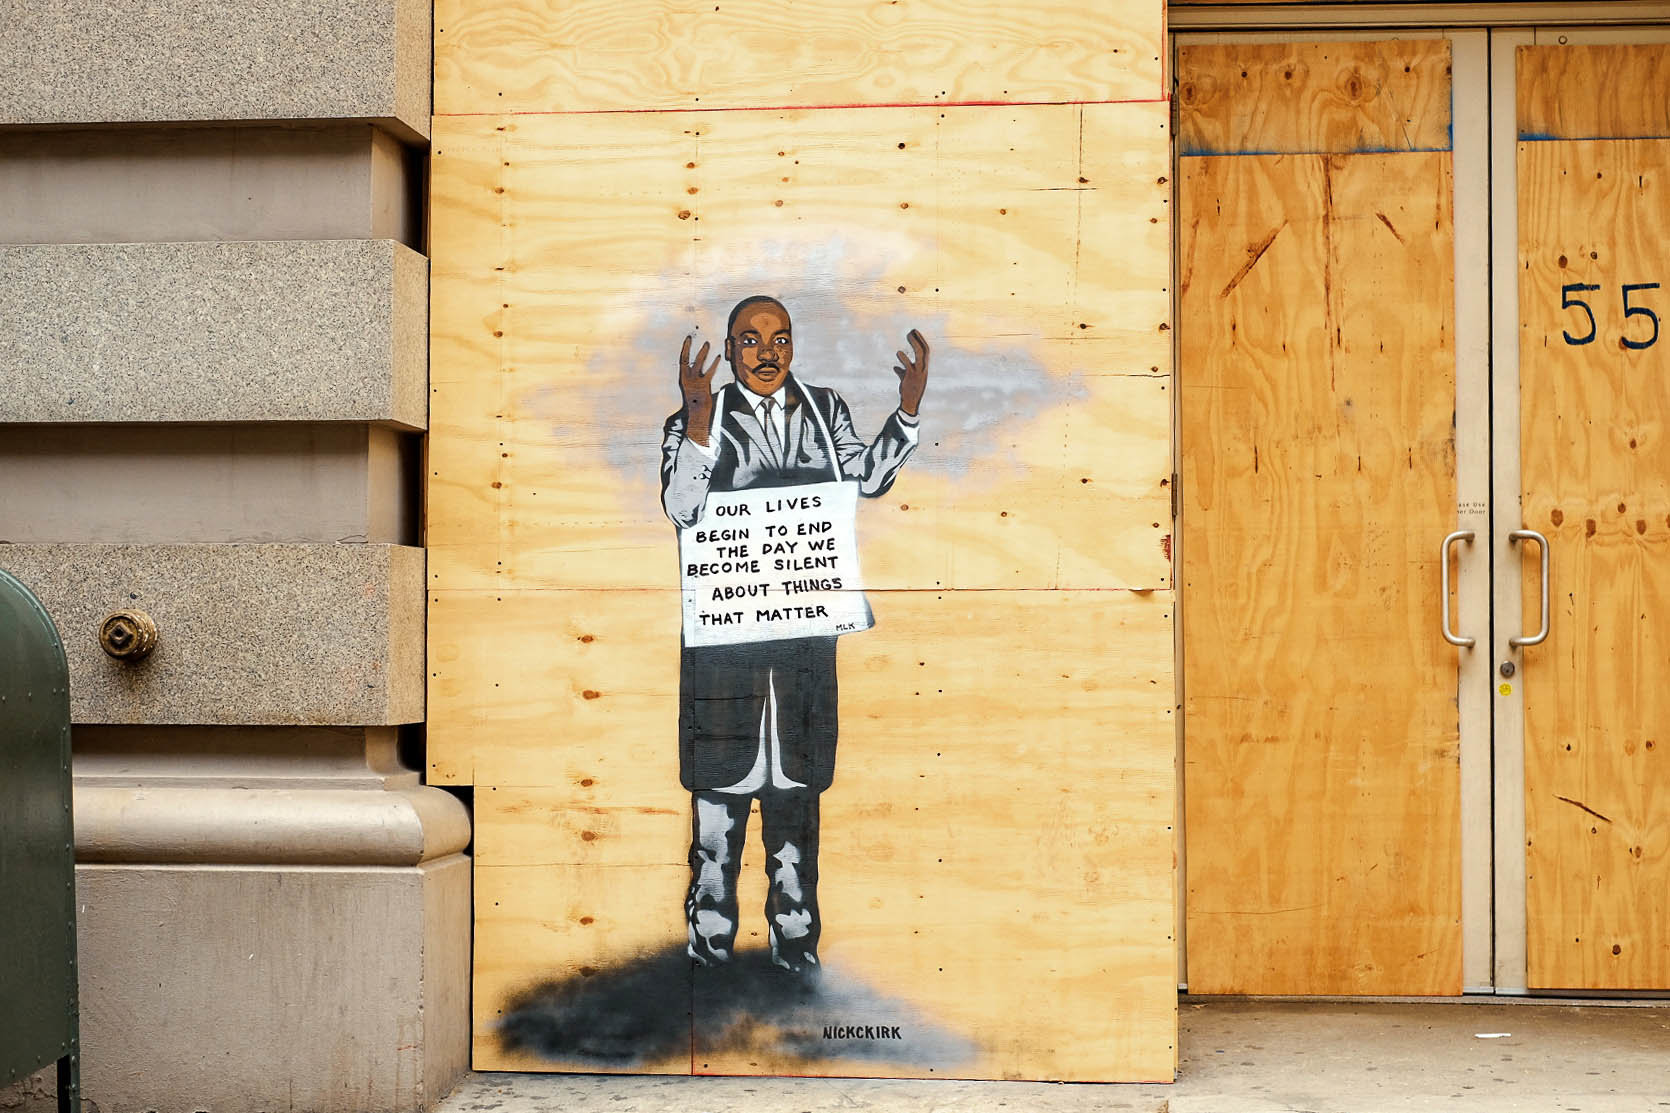 OUR LIVES
BEGIN TO END
THE DAY WE
BECOME SILENT
ABOUT THINGS
THAT MATTER
MLK
NICKCKIRK
55
Door